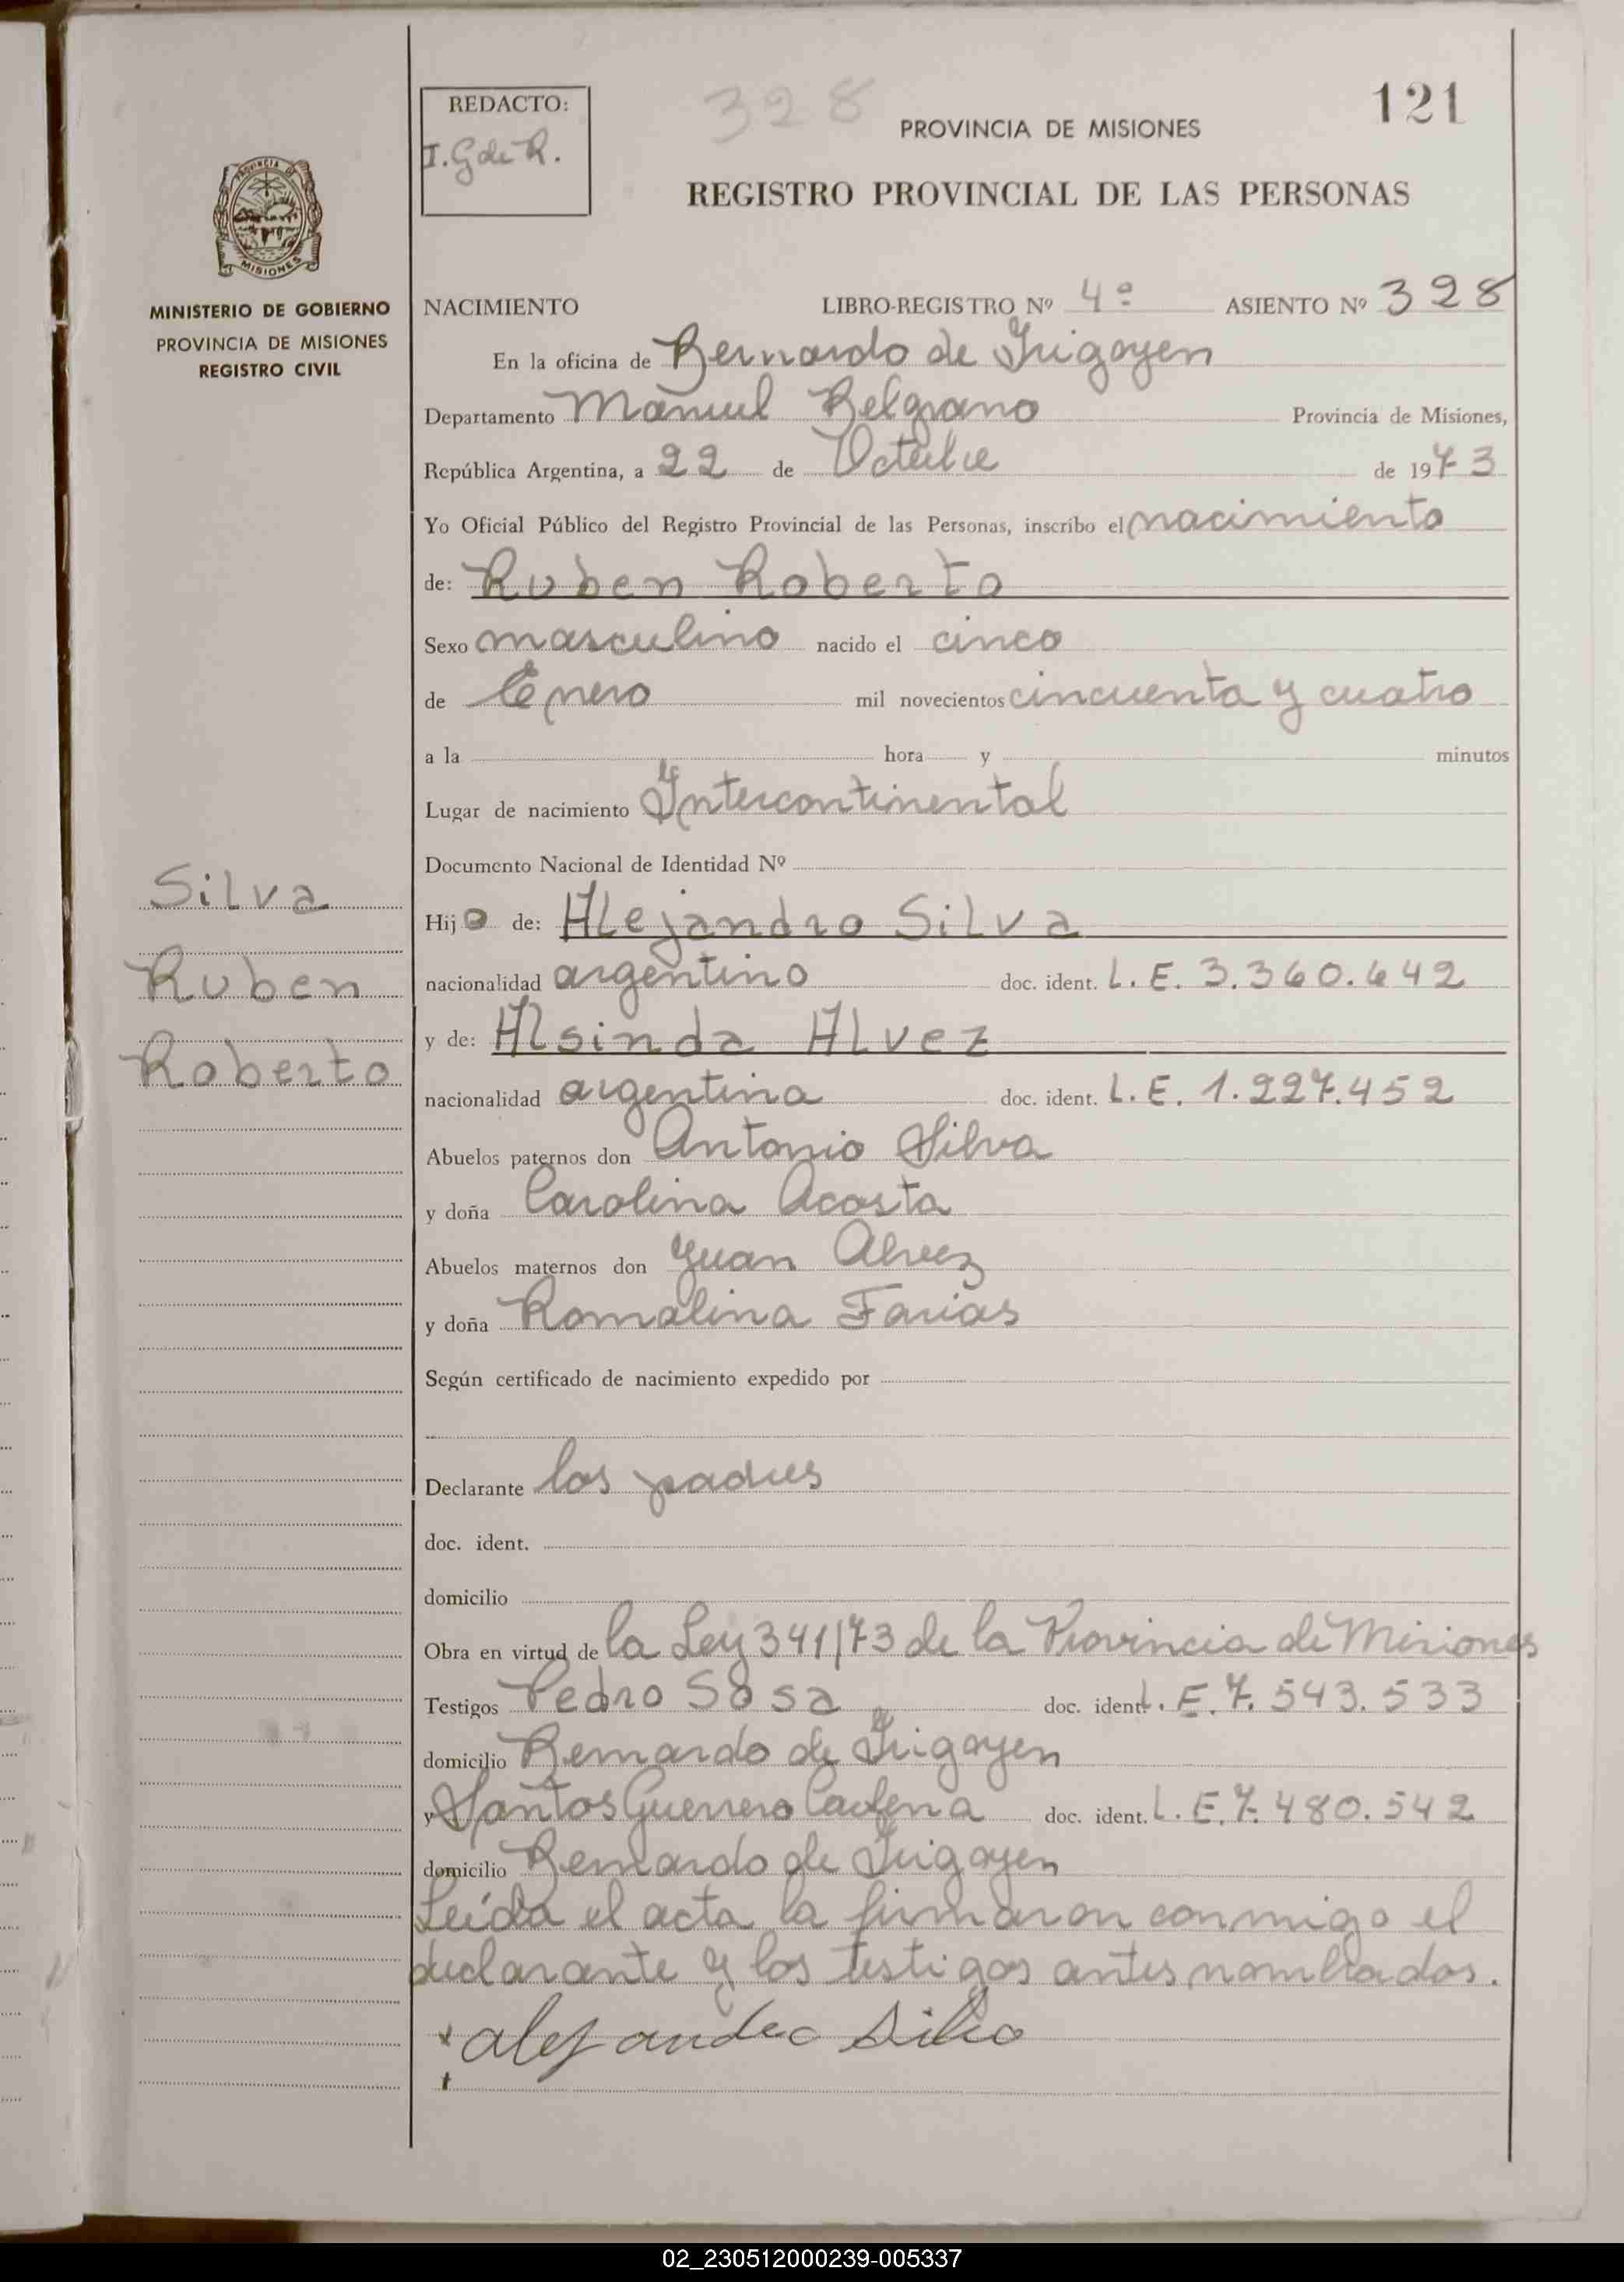 REDACTO:
I. G de R.
328
121
PROVINCIA DE MISIONES
REGISTRO PROVINCIAL DE LAS PERSONAS
PROVINCIA DE
MISIONES
MINISTERIO DE GOBIERNO
PROVINCIA DE MISIONES
REGISTRO CIVIL
NACIMIENTO LIBRO-REGISTRO Nº 4º ASIENTO Nº 328
En la oficina de Bernardo de Irigoyen
Departamento Manuel Belgrano Provincia de Misiones,
República Argentina, a 22 de Octubre de 1973
Yo Oficial Público del Registro Provincial de las Personas, inscribo el nacimiento
de: Ruben Roberto
Sexo masculino nacido el cinco
de Enero mil novecientos cincuenta y cuatro
a la hora y minutos
Lugar de nacimiento Intercontinental
Documento Nacional de Identidad Nº
Silva
Ruben
Roberto
Hijo de: Alejandro Silva
nacionalidad argentino doc. ident. L. E. 3.360.642
y de: Alsinda Alvez
nacionalidad argentina doc. ident. L. E. 1.227.452
Abuelos paternos don Antonio Silva
y doña Carolina Acosta
Abuelos maternos don Juan Alvez
y doña Romalina Farias
Según certificado de nacimiento expedido por
Declarante los padres
doc. ident.
domicilio
Obra en virtud de la Ley 341/73 de la Provincia de Misiones
Testigos Pedro Sosa doc. ident. L. E. 7. 543. 533
domicilio Bernardo de Irigoyen
y Santos Guerrero Cadena doc. ident. L. E. 7. 480. 542
domicilio Bernardo de Irigoyen
Leída el acta la firmaron conmigo el
declarante y los testigos antes nombrados.
x alejandro Silva
02_230512000239-005337